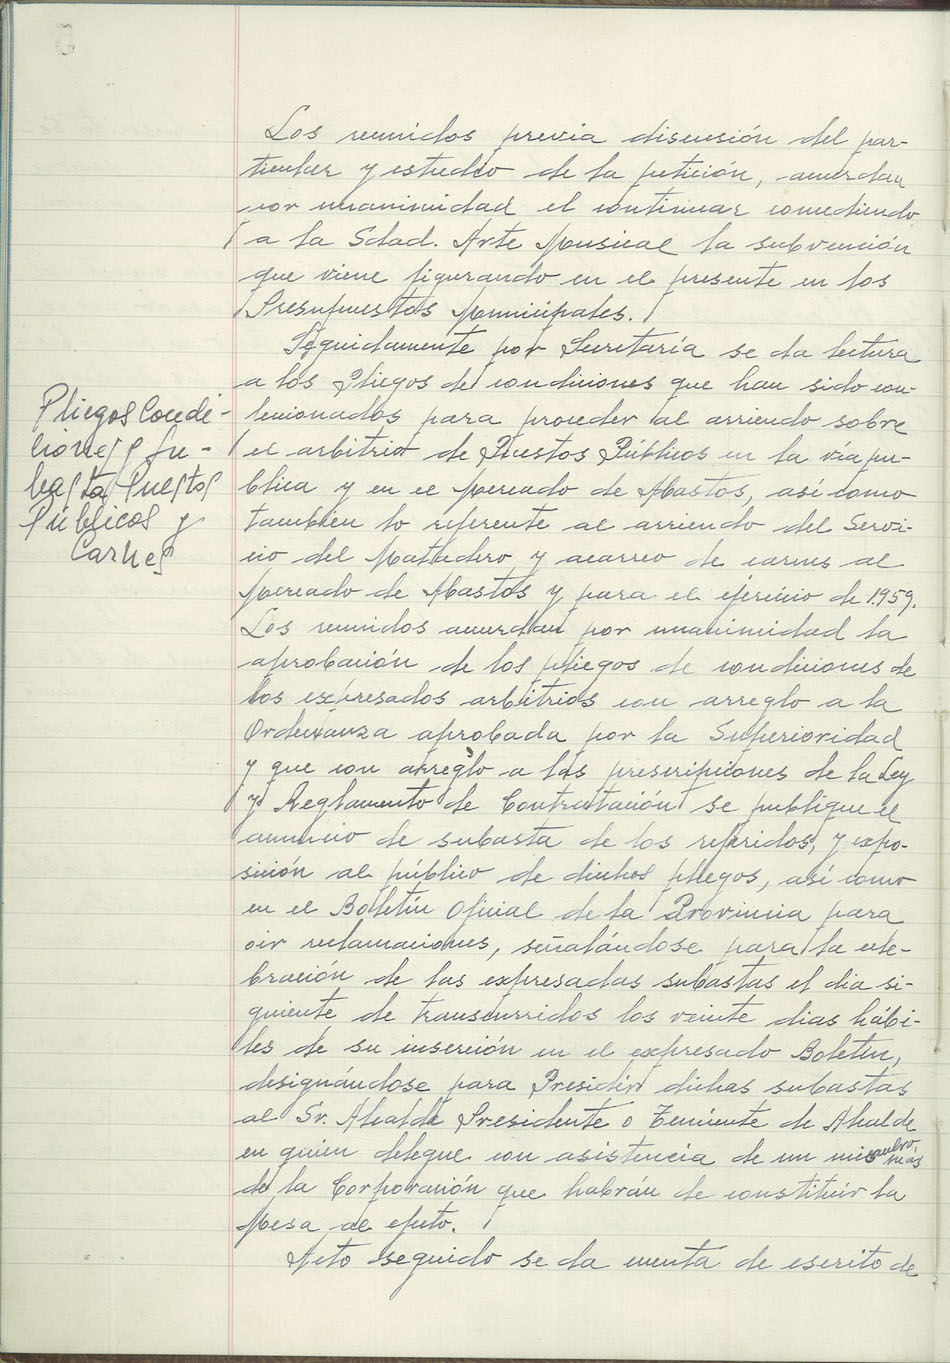 Los reunidos previa discusión del par-
ticular y estudio de la petición, acuerdan
por unanimidad el continuar concediendo
a la Sdad. Arte Musical la subvención
que viene figurando en el presente en los
Presupuestos Municipales.
Seguidamente por Secretaría se da lectura
a los Pliegos de condiciones que han sido con-
Pliegos Condi-
ciones y Su-
basta Puestos
Públicos y
Carnes
feccionados para proceder al arriendo sobre
el arbitrio de Puestos Públicos en la vía pu-
blica y en el Mercado de Abastos, así como
también lo referente al arriendo del Servi-
cio del Matadero y acarreo de carnes al
Mercado de Abastos y para el ejercicio de 1.959.
Los reunidos acuerdan por unanimidad la
aprobación de los pliegos de condiciones de
los expresados arbitrios con arreglo a la
Ordenanza aprobada por la Superioridad
y que con arreglo a las prescripciones de la Ley
y Reglamento de Contratación se publique el
anuncio de subasta de los referidos, y expo-
sición al público de dichos pliegos, así como
en el Boletín Oficial de la Provincia para
oir reclamaciones, señalándose para la cele-
bración de las expresadas subastas el dia si-
guiente de transcurridos los veinte dias hábi-
les de su inserción en el expresado Boletín,
designándose para Presidir dichas subastas
al Sr. Alcalde Presidente o Teniente de Alcalde
en quien delegue con asistencia de un miembro más
de la Corporación que habrán de constituir la
Mesa al efecto.
Acto seguido se da cuenta de escrito de